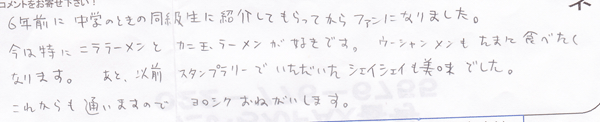 コメントをお寄せ下さい!
6年前に中学のときの同級生に紹介してもらってからファンになりました。
今は特にニララーメンとカニ玉ラーメンが好きです。ウーシャンメンもたまに食べたく
なります。 あと、以前スタンプラリーでいただいたシェイシェイも美味でした。
これからも通いますので ヨロシクおねがいします。